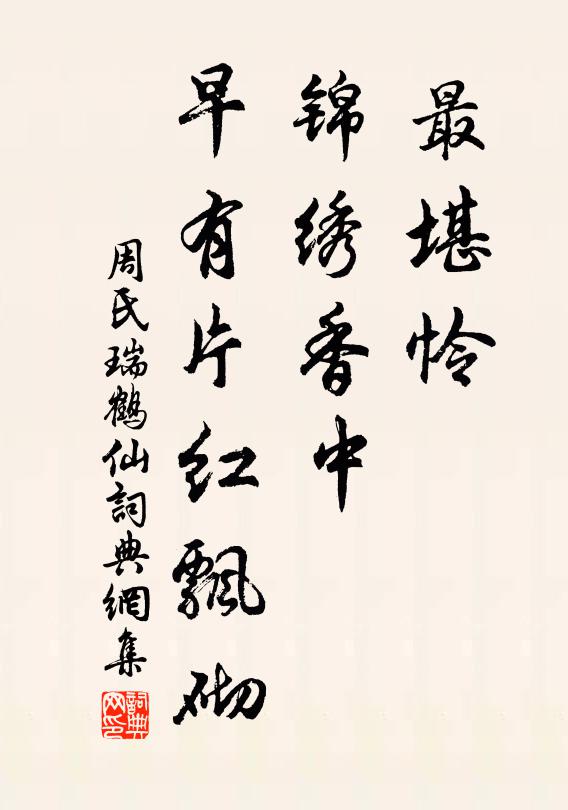 最堪怜
锦绣香中
早有片红飘砌
周氏瑞鹤仙詞典網集
詞典網印